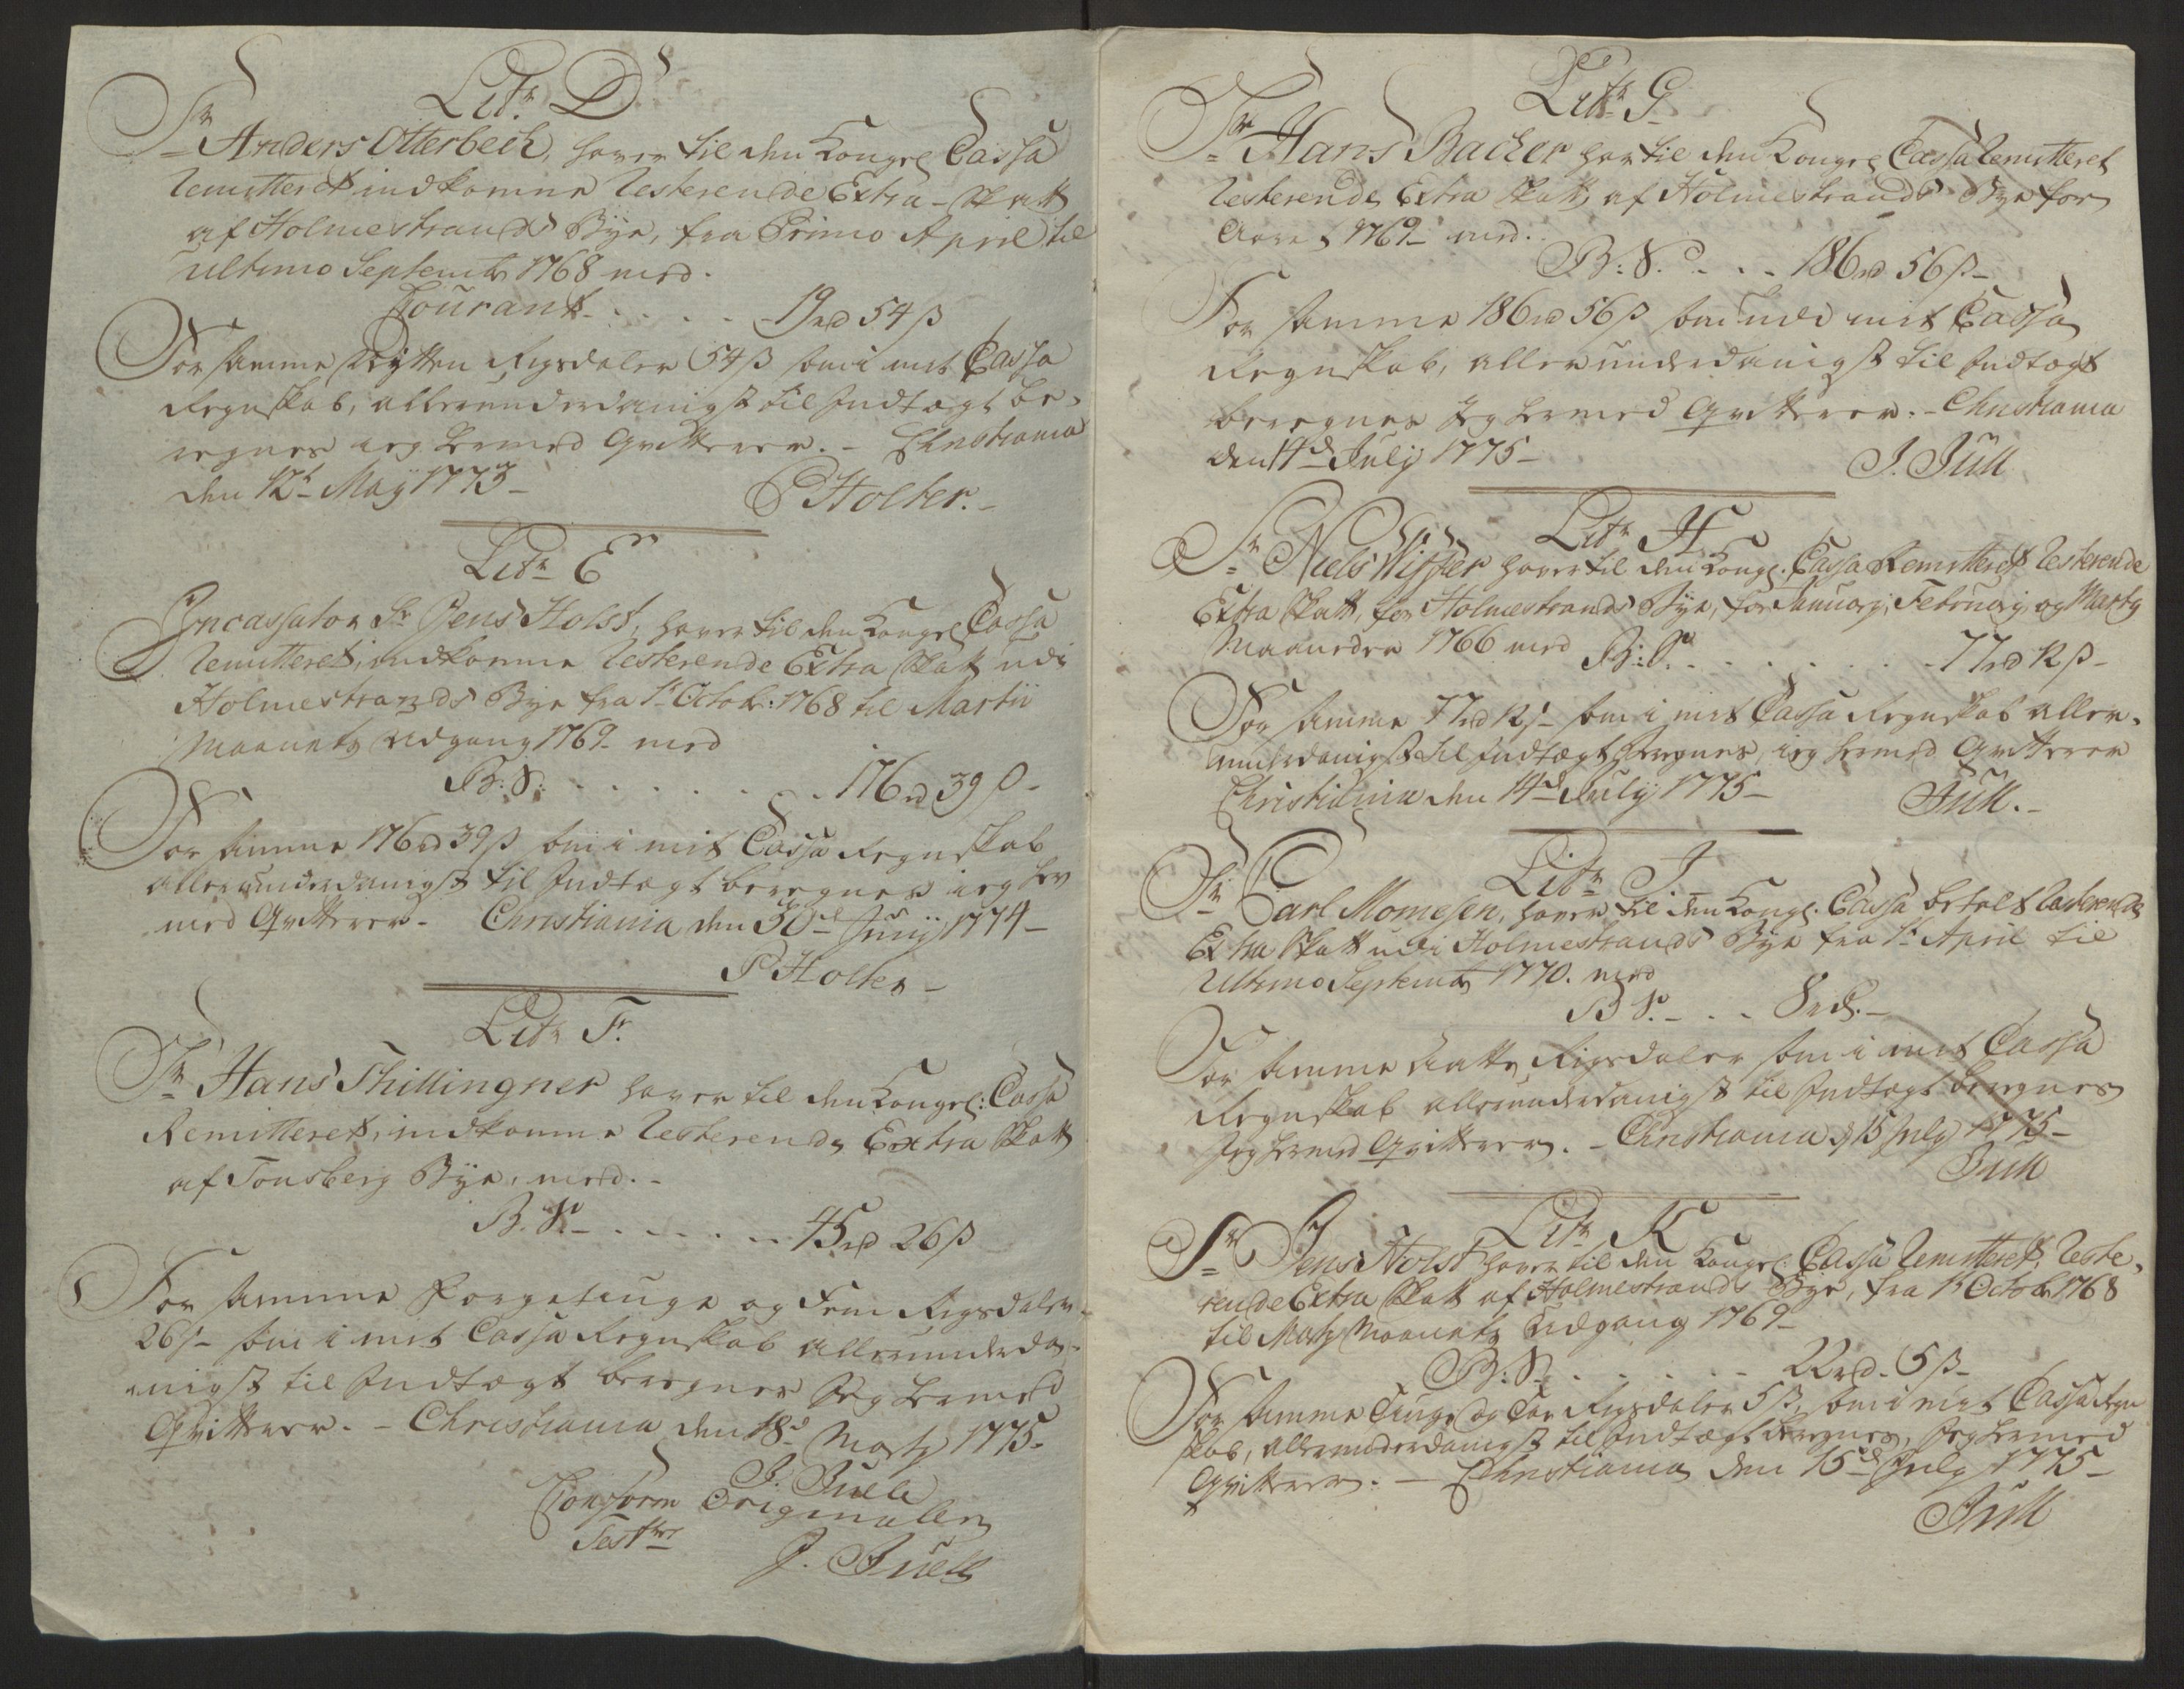 Litr D
Sr Anders Otterbech, haver til den Kongel Cassa
remitteret indkomne resterende Extra-Skatt
af Holmestrands Bye, fra Primo April til
ultimo Septembr 1768 med.
Courant. . . . . 19 rd 54 ß
For samme Nitten Rigsdaler 54 ß som i mit Cassa
Regnskab, allerunderdanigst til Indtægt be-
regnes ieg hermed Qvitterer. - Christiania
den 12t May 1773 -
P Holter. -
Litr E
Incassator Sr Jens Holst, haver til den Kongel Cassa
remitteret, indkomne resterende Extra Skatt udi
Holmestrands Bye fra 1t Octobr: 1768 til Martii
Maaneds Udgang 1769 - med
B: S: . . . . . . 176 rd 39 ß -
For samme 176 rd 39 ß som i mit Cassa Regnskab
allerunderdanigst til Indtægt beregnes ieg her
med Qvitterer - Christiania den 30d Junij 1774 -
P Holter -
Litr F.
Sr Hans Thillingner haver til den Kongel: Cassa
Remitteret, indkomne resterende Extra Skatt
af Tonsberg Bye, med. -
B. S. - . . . . . 45 rd 26 ß
For samme Forgetiuge og Fem Rigsdaler
26 ß - som i mit Cassa Regnskab allerunderda-
nigst til Indtægt beregnes Jeg hermed
Qvitterer. - Christiania den 18d Marty 1775.
J. Juell
Conform Originalen
Test
J. Juell
Litr G
Sr Hans Backer har til den Kongel Cassa remitteret
resterende Extra Skatt af Holmestrands Bye for
Aaret 1769 - med.
B: S. . . - 186 rd 56 ß -
For samme 186 rd 56 ß som udi mit Cassa
Regnskab, allerunderdanigst til Indtægt
beregnes Jeg hermed Qvitterer. - Christiania
den 14d July 1775 -
J. Jull
Litr H
Sr Niels Wisser haver til den Kongl. Cassa Remitteret resterende
Extra Skatt, for Holmestrands Bye, for Januarj, Februarj og Marty
Maaneder 1766 med B: S. . . . . . . 77 rd 12 ß -
For samme 77 rd 12 ß - som i mit Cassa Regnskab aller-
underdanigst til Indtægt beregnes, ieg hermed Qvitterer
Christiania den 14d July 1775 -
Jull. -
Litr I.
Sr Carl Momesen, haver til den Kongl. Cassa betalt resterende
Extra Skatt udi Holmestrands Bye fra 1t April til
Ultimo Septembr 1770. med
B S. - . . - 8 rd. -
For samme Aatte Rigsdaler som i mit Cassa
Regnskab allerunderdanigst til Indtægt beregnes
Jeg hermed Qvitterer. - Christiania d 15 July 1775 -
Jull
Litr K
Sr Jens Holst haver til den Kongel: Cassa remitteret, reste-
rende Extra Skatt af Holmestrands Bye, fra 1t Octobr 1768
til Marty Maaneds Udgang 1769 -
B: S. . . . . . - 22 rd. 5 ß -
For samme Tiuge og Toe Rigsdaler 5 ß, som i mit Cassa Regn
skab, allerunderdanigst til Indtægt beregnes, Jeg hermed
Qvitterer. - Christiania den 15d July 1775 -
Jull